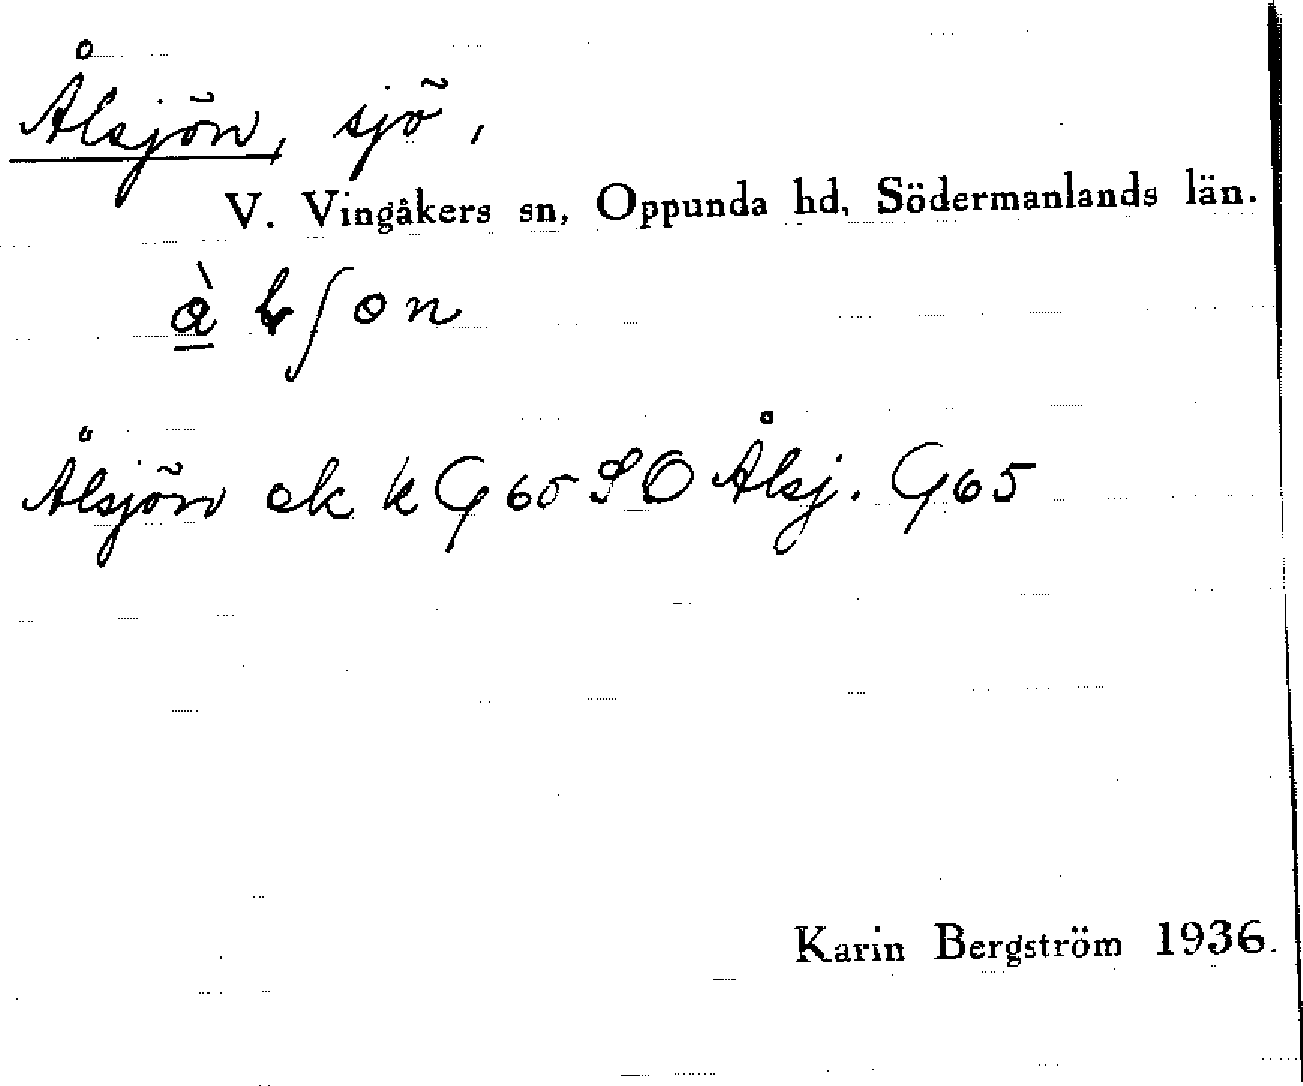 Ålsjön, sjö,
V. Vingåkers sn, Oppunda hd, Södermanlands län.
Ålsjön ek k G 65 SO Ålsj. G 65
Karin Bergström 1936.